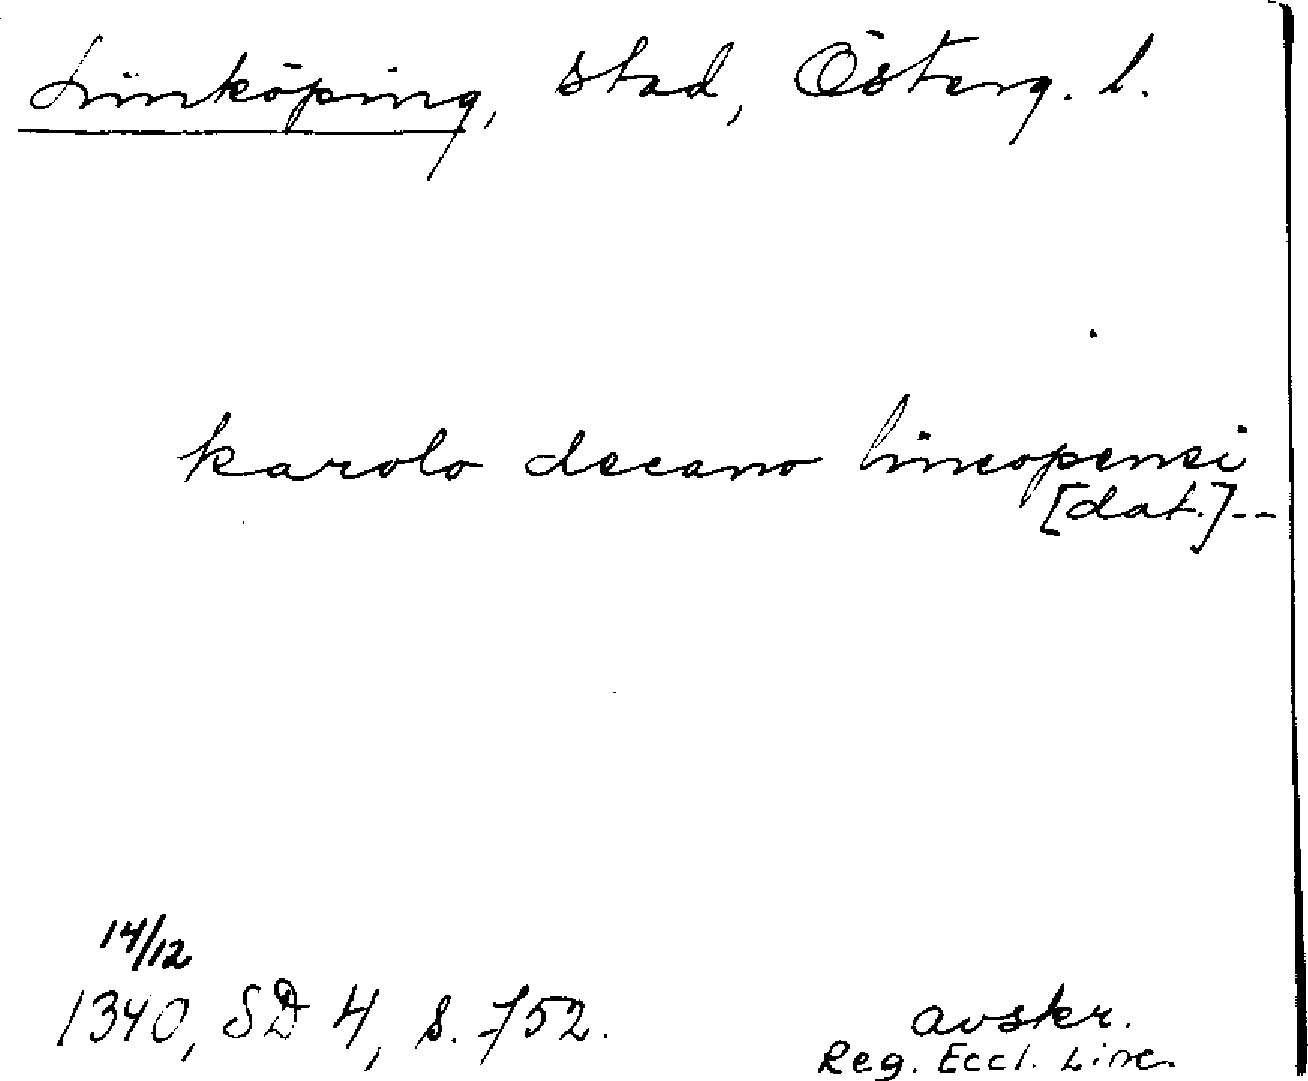 Linköping, stad, Österg. l.
karolo decano lincopensi
[dat.]--
14/12
1340, SD 4, s. 752.
avskr.
Reg. Eccl. Linc.